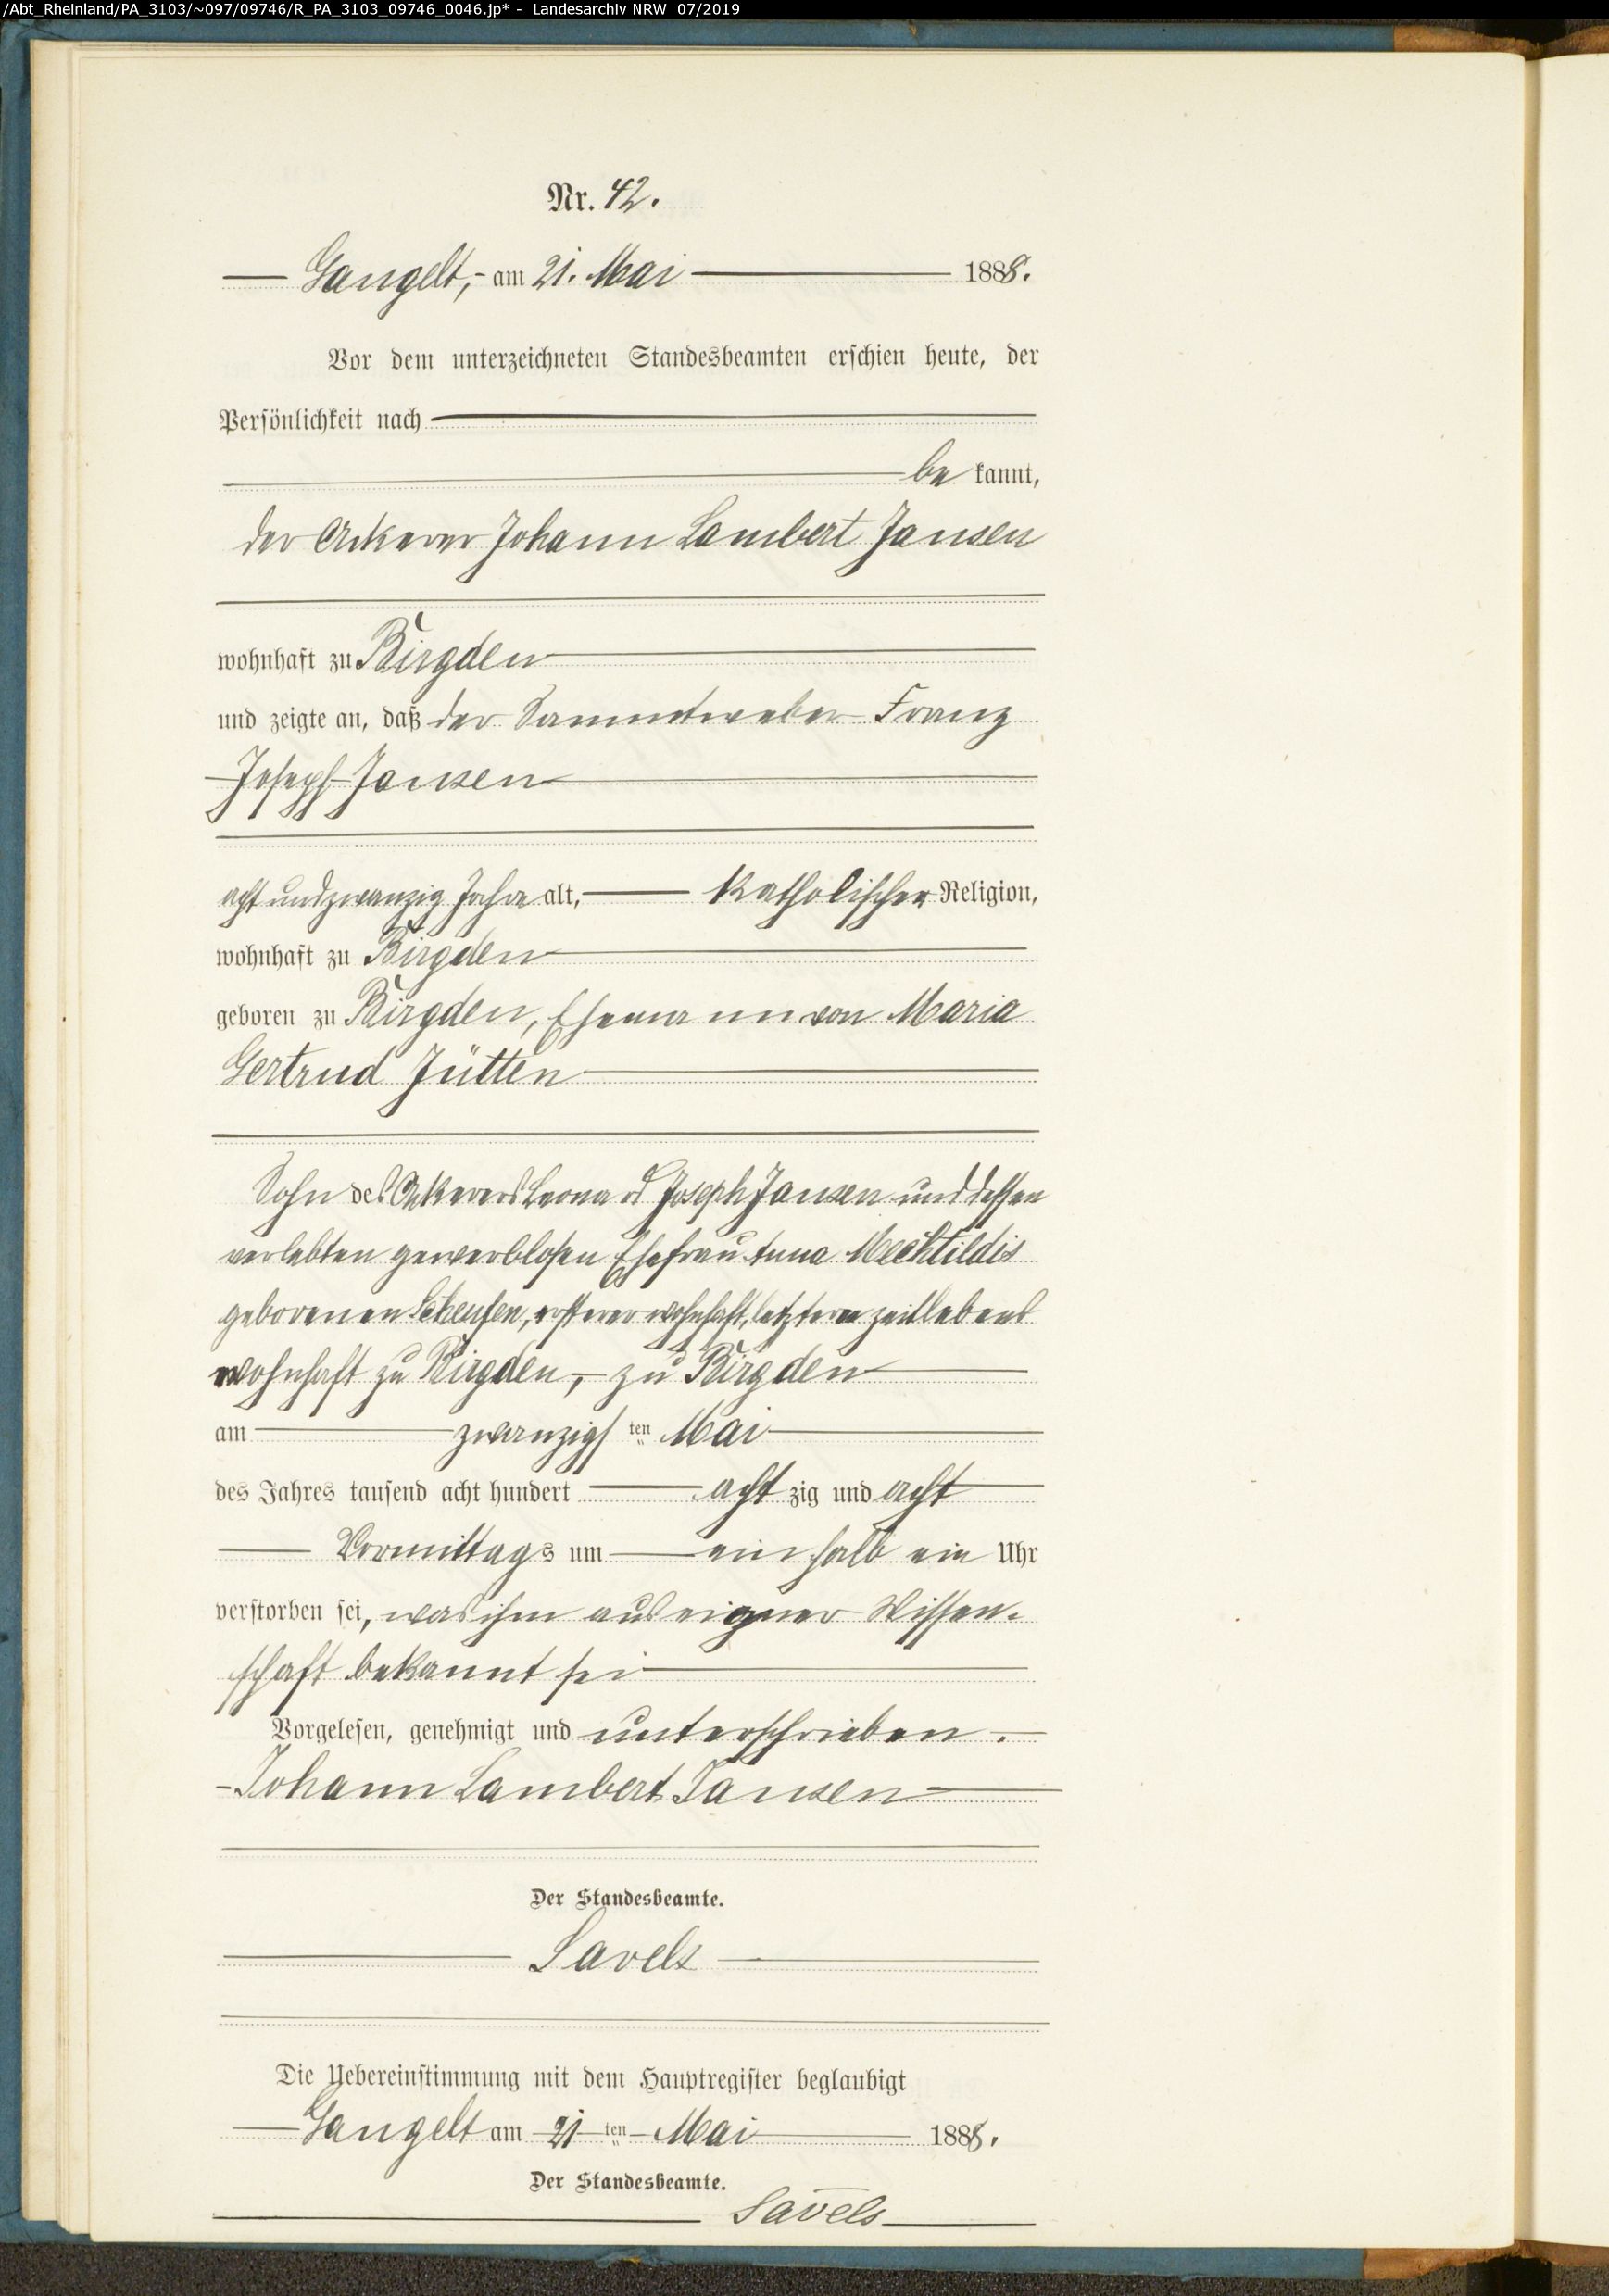 /Abt_Rheinland/PA_3103/~097/09746/R_PA_3103_09746_0046.jp* - Landesarchiv NRW 07/2019
Nr. 42.
Gangelt, am 21. Mai 1888.
Vor dem unterzeichneten Standesbeamten erschien heute, der
Persönlichkeit nach
be kannt,
der Ackerer Johann Lambert Jansen
wohnhaft zu Birgden
und zeigte an, daß der Sammtweber Franz
Joseph Jansen
acht und zwanzig Jahre alt, katholischer Religion,
wohnhaft zu Birgden
geboren zu Birgden, Ehemann von Maria
Gertrud Jütten
Sohn des Ackerers Leonard Joseph Jansen und dessen
verlebten gewerblosen Ehefrau Anna Mechtildis
geborenen, ersterer wohnhaft, letztere zeitlebens
wohnhaft zu Birgden, zu Birgden
am zwanzigsten Mai
des Jahres tausend acht hundert acht zig und acht
Vormittags um ein halb ein Uhr
verstorben sei, was ihm aus eigner Wissen-
schaft bekannt sei
Vorgelesen, genehmigt und unterschrieben.
Johann Lambert Jansen
Der Standesbeamte.
Savels
Die Uebereinstimmung mit dem Hauptregister beglaubigt
Gangelt am 21 ten Mai 1888.
Der Standesbeamte.
Savels